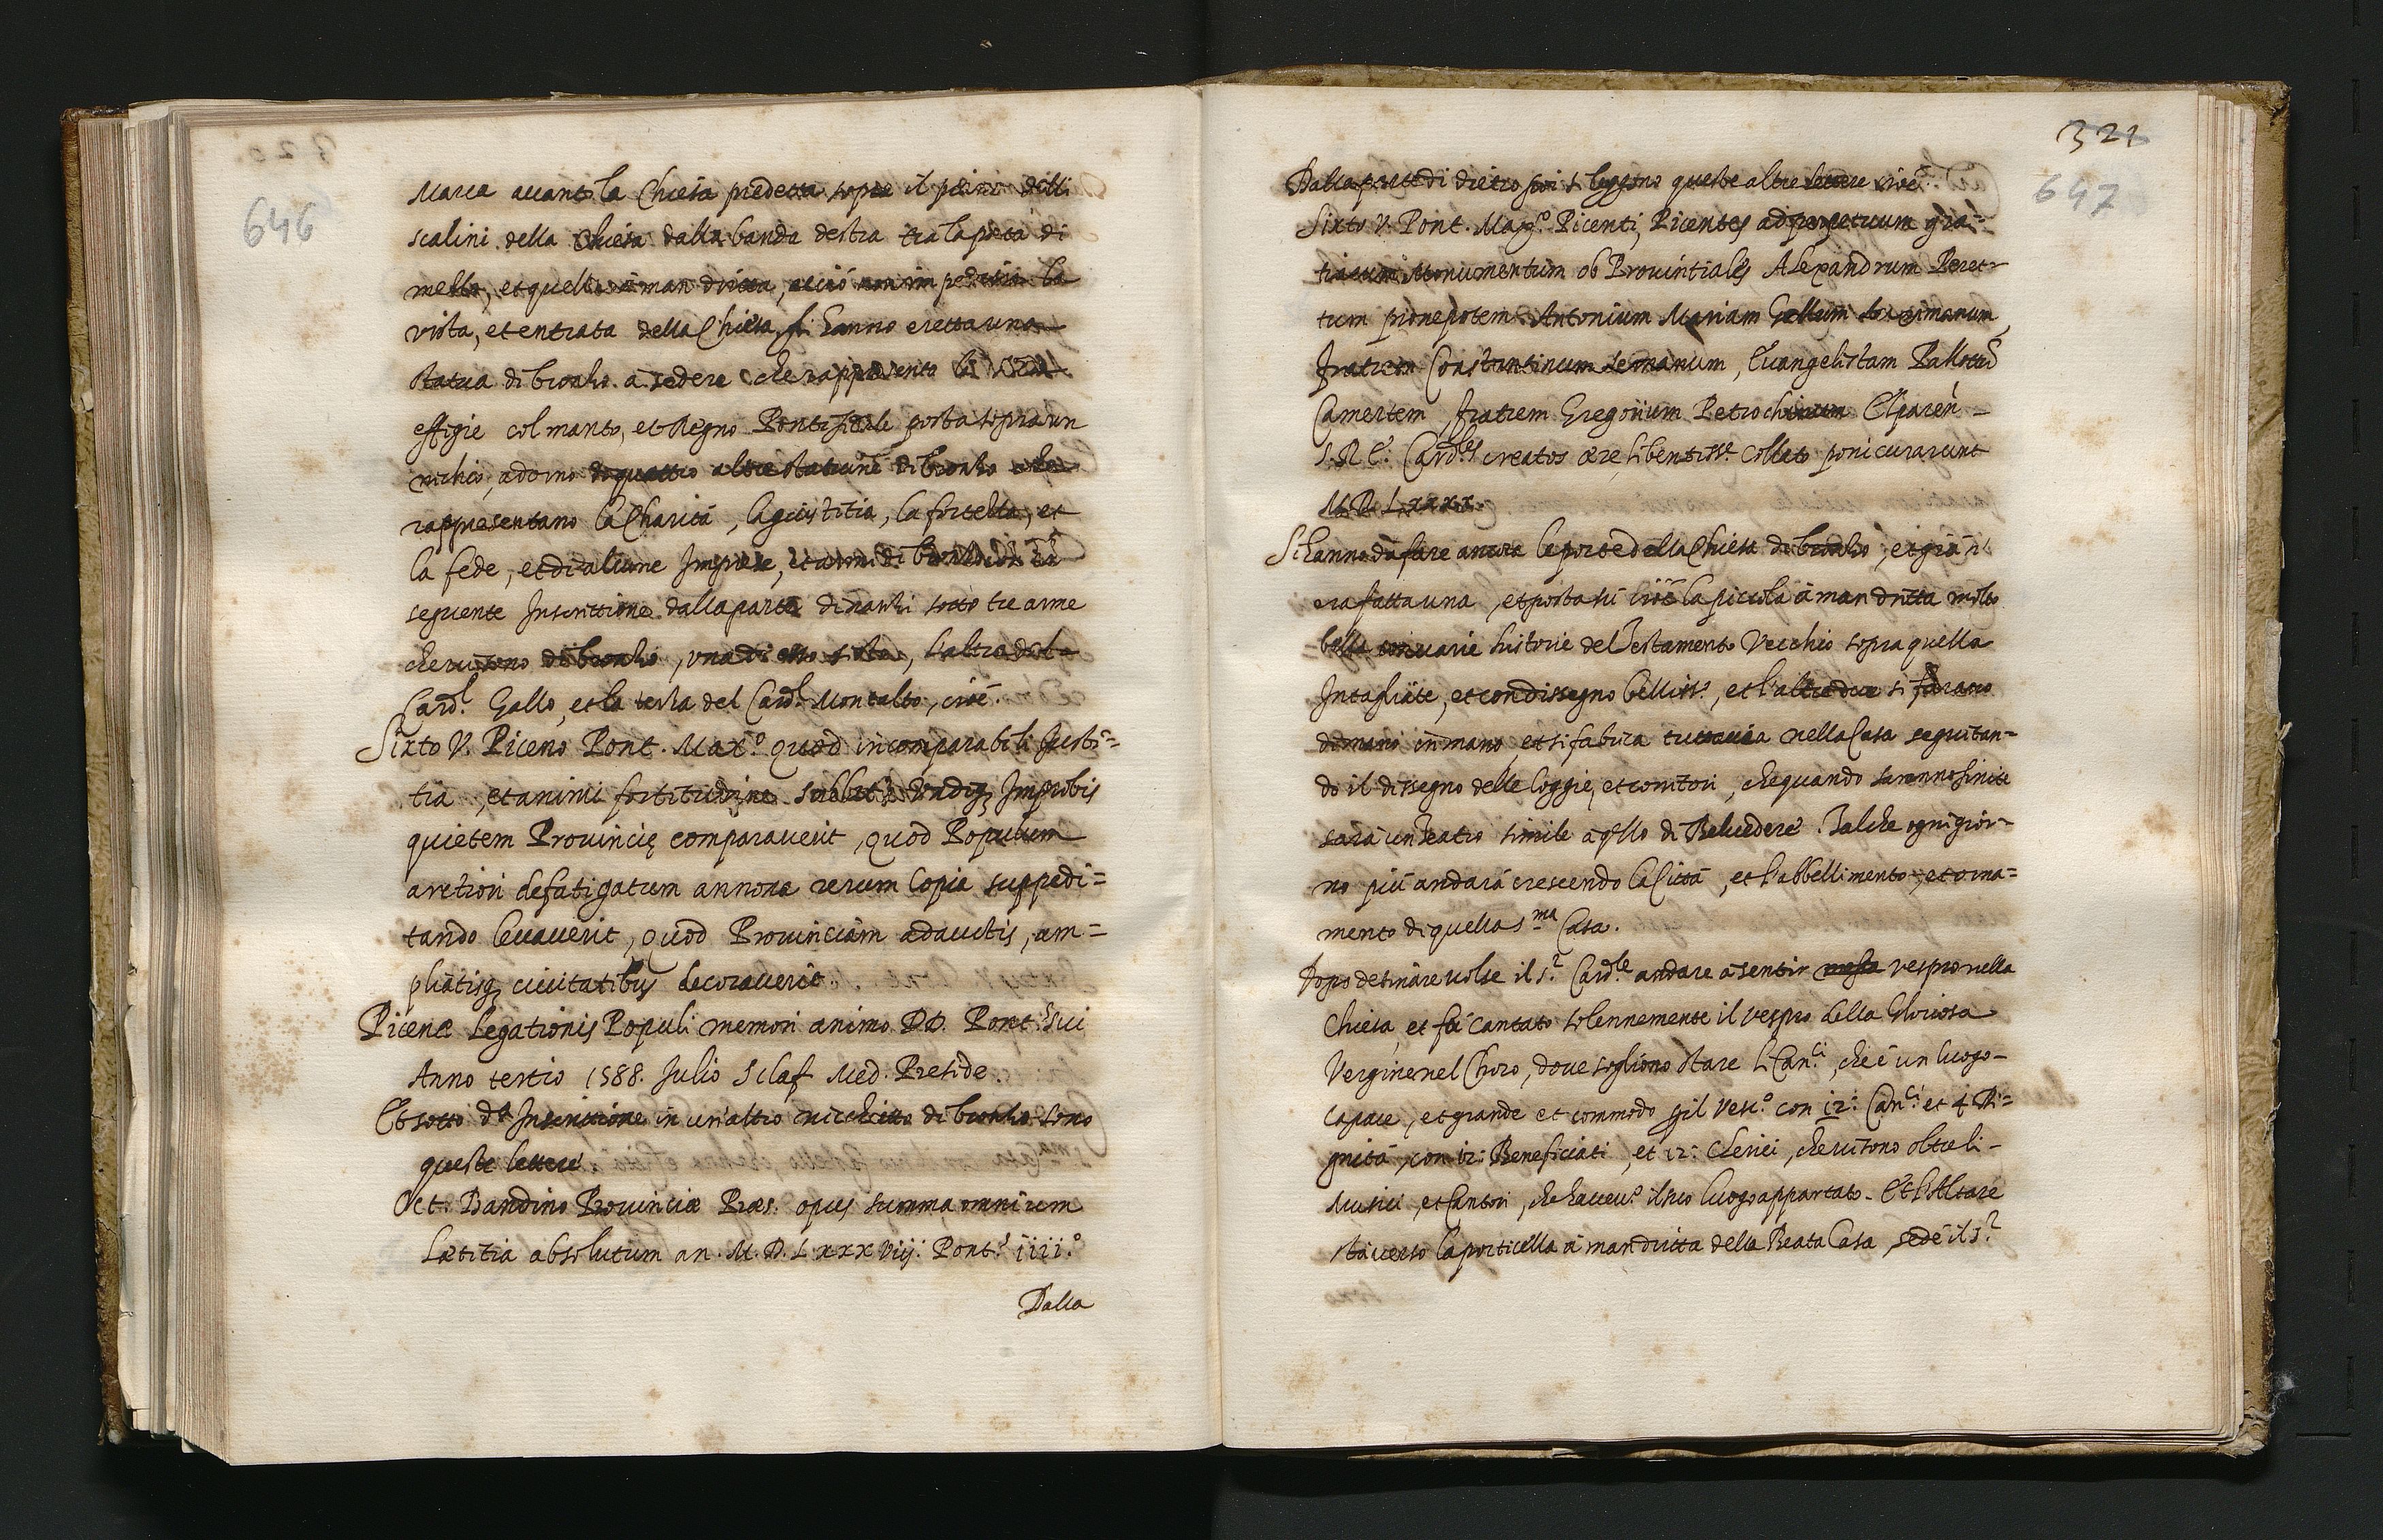 646
Marca avanti la Chiesa predetta sopra il primo delli
scalini della Chiesa dalla banda destra tra la porta di
mezzo, et quella à man dritta, acciò non impedisca la
vista, et entrata della Chiesa, li hanno eretta una
statua di bronzo à sedere che rappresenta la
effigie col manto, et Regno Pontificale posta sopra un
nichio, adorno da quattro altre statuine di bronzo che
rappresentano la Charità, la giustitia, la fortezza, et
la fede, et di alcune Imprese, et armi di bronzo
seguente Inscrittione dalla parte dinanzi sotto tre arme
che vi sono di bronzo, una di esso sisto, l'altra del
Card.l Gallo, et la terza del Card.l Montalto, cioè.
Sixto V. Piceno Pont. Max.o quod incomparabili Justi=
tia, et animi fortitudine sublatis undiq; Improbis
quietem Provincię comparaverit, quod Populum
arctiori defatigatum annona rerum copia suppedi=
tando levaverit, quod Provinciam adauctis, am=
pliatisq; civitatibus decoraverit
Picenæ Legationis Populi memori animo DD. Pont.s sui
Anno tertio 1588. Julio Sclaf. Med. Preside.
Et sotto d.a Inscrittione in un'altro nicchietto di bronzo sono
queste lettere
Oct. Bandino Provinciæ Præs. opus summa omnium
Lætitia absolutum an. M. D. L xxx viij. Pont.s iiii.o
Dalla
321
647
Dalla parte di dietro poi si leggono queste altre lettere cioè.
Sixto V. Pont. Max.o Picenti, Picentes ad perpetuum gra=
tiarum Monumentum ob Provintiales Alexandrum Peret-
tum pronepotem Antonium Mariam Gallum Auximanum,
fratrem Constantinum Sernanum, Evangelistam Pallottũ
Camertem, fratrem Gregorium Petrochinum Elpareñ-
S. R. E. Card.les creatos ære libentiss.e collato poni curarunt
M. D. L xxxx.
Si hanno da fare ancora le porte della Chiesa di bronzo, et già n'
era fatta una, et posta sù cioè la piccola à man dritta molto
bella con varie historie del Testamento Vecchio sopra quella
Intagliate, et con dissegno belliss.o, et l'altre due si farano
di mano in mano, et si fabrica tuttavia nella Casa seguitan=
do il dissegno delle loggie, et corritori, che quando saranno finite
sarà un teatro simile a q.llo di Belvedere. Talche ogni gior-
no più andarà crescendo la Città, et l'abbellimento, et orna=
mento di quella s.ma Casa.
Dopo desinare volse il s.r Card.le andare à sentir vespro nella
Chiesa, et fù cantato solennemente il vespro della Gloriosa
Vergine nel Choro, dove sogliono stare li Can.ci, che è un luogo-
capace, et grande et commodo p il Vesc.o con 12: Can.ci et 4 Di=
gnità, con 12: Beneficiati, et 12: Clerici, che vi sono oltre li-
Musici, et Cantori, che hav.o il suo luogo appartato. Et l'Altare
stà verso la porticella à man dritta della Beata Casa, sedè il s.r